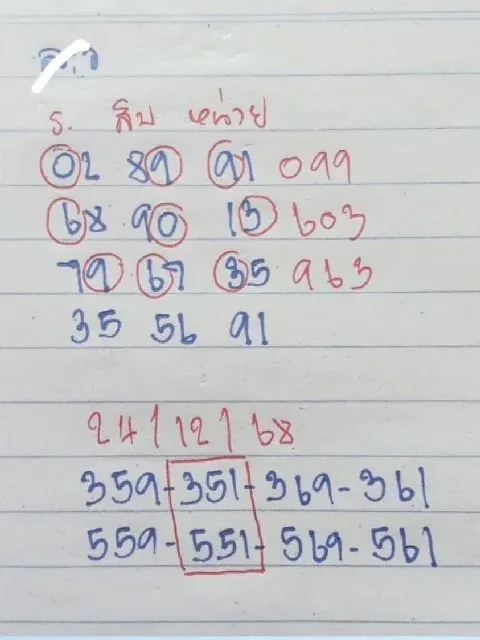 ร. สิบ หน่วย
02 89 91 099
68 90 13 603
79 67 35 963
35 56 91
24 | 12 | 68
359-351-369-361
559-551-569-561